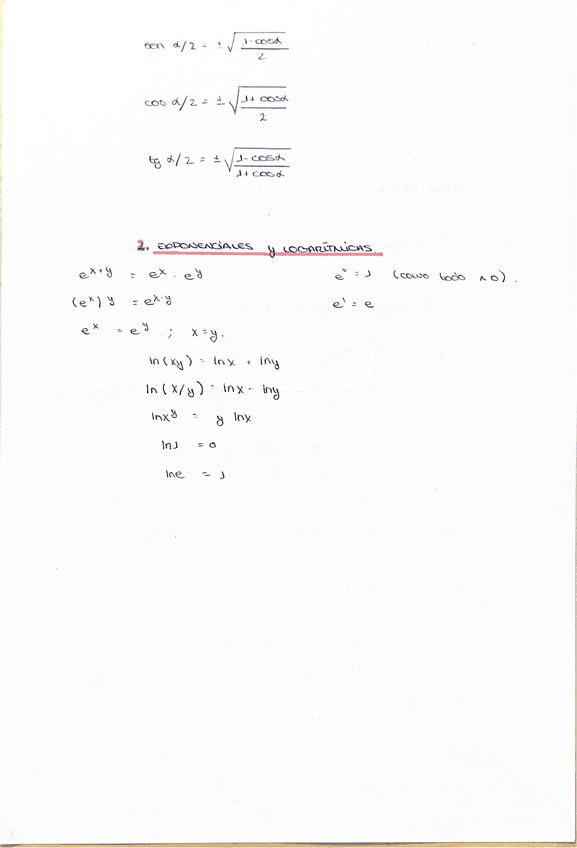 sen α/2 = ± √((1-cosα)/2)
cos α/2 = ± √((1+cosα)/2)
tg α/2 = ± √((1-cosα)/(1+cosα))
2. EXPONENCIALES y LOGARÍTMICAS
e^(x+y) = e^x · e^y    e^0 = 1 (como todo ^ 0).
(e^x)^y = e^(x·y)    e^1 = e
e^x = e^y ; x=y.
ln(xy) = lnx + lny
ln(x/y) = lnx - lny
lnx^y = y lnx
ln1 = 0
lne = 1